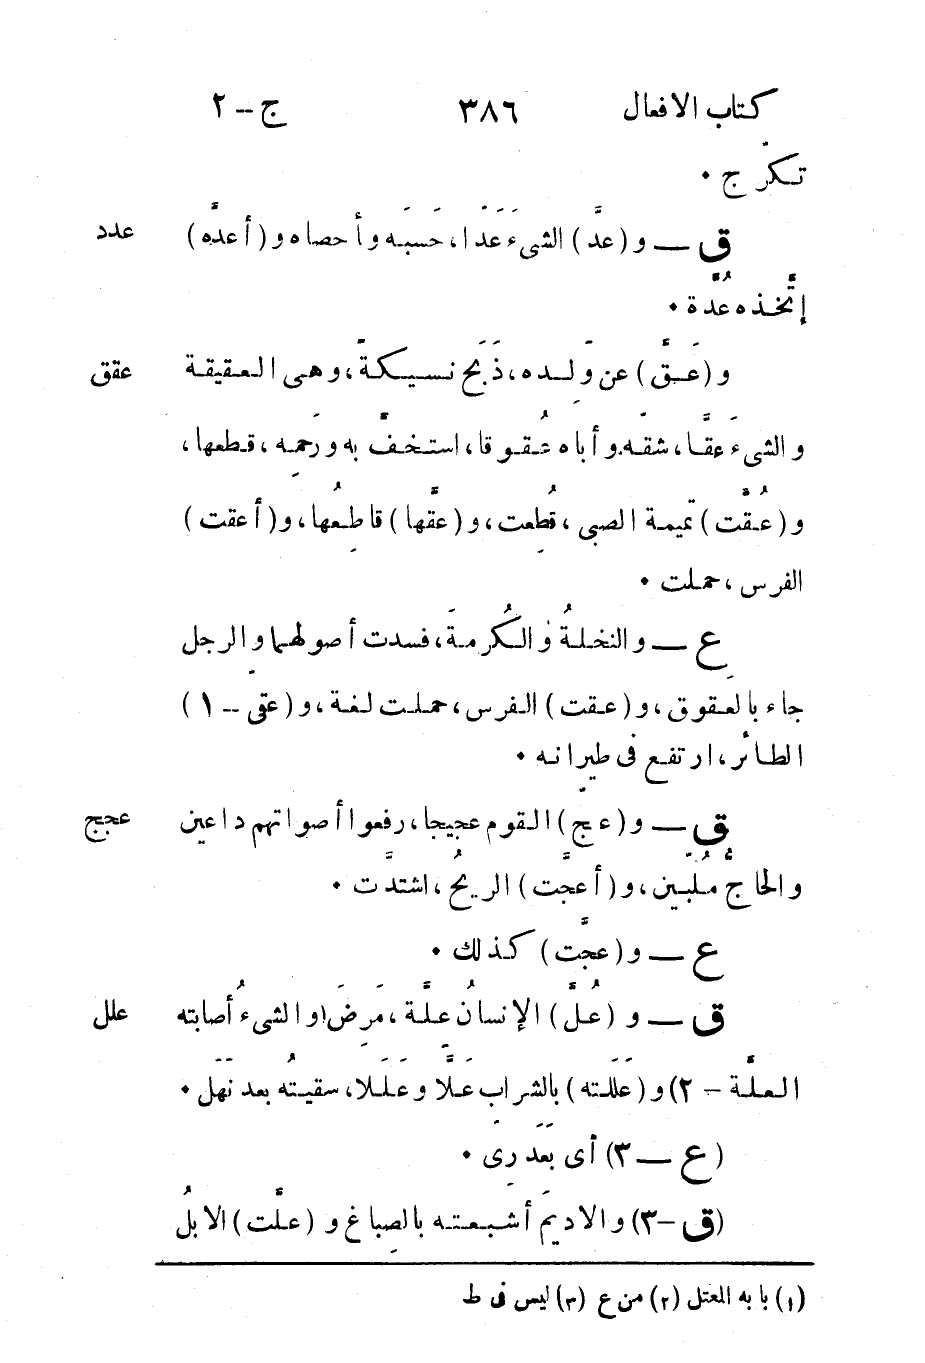 كتاب الافعال ٣٨٦ ج – ٢
تكرّ ج ٠
ق — و (عدَّ) الشىءَ عَدّا، حَسَبَه وأحصاه و (أعدَّه) عدد
إتَّخذه عُدَّة ٠
و (عَقَّ) عن وَلِده، ذَبَح نسيكةً، وهى العقيقة عقق
والشىءَ عقَّا، شقّه. وأباه عُقوقا، استخفَّ به ورَحِمه، قطعها،
و (عُقَّت) تميمة الصبى، قُطِعت، و (عقَّها) قاطِعُها، و (أعقت)
الفرس، حملت ٠
ع — والنخلةُ والكُرمةَ، فسدت أصولهما والرجل
جاء بالعقوق، و (عقت) الفرس، حملت لغة، و (عقى – ١)
الطائر، ارتفع فى طيرانه ٠
ق — و (عج) القوم عجيجا، رفعوا أصواتهم داعين عجج
والحاجُّ مُلبّين، و (أعجَّت) الريحُ، اشتدَّت ٠
ع — و (عجَّت) كذلك ٠
ق — و (عُلَّ) الإنسانُ عِلَّة، مَرِضَ او الشىءُ أصابته علل
العلَّة – ٢) و (عَلَلَته) بالشراب عَلَّا وعَلَلا، سقيتُه بعد نَهَل ٠
(ع — ٣) أى بَعَدَ رِى ٠
(ق – ٣) والاديمَ أشبعته بالصِباغ و (علَّت) الابلُ
(١) بابه المعتل (٢) من ع (٣) ليس فى ط